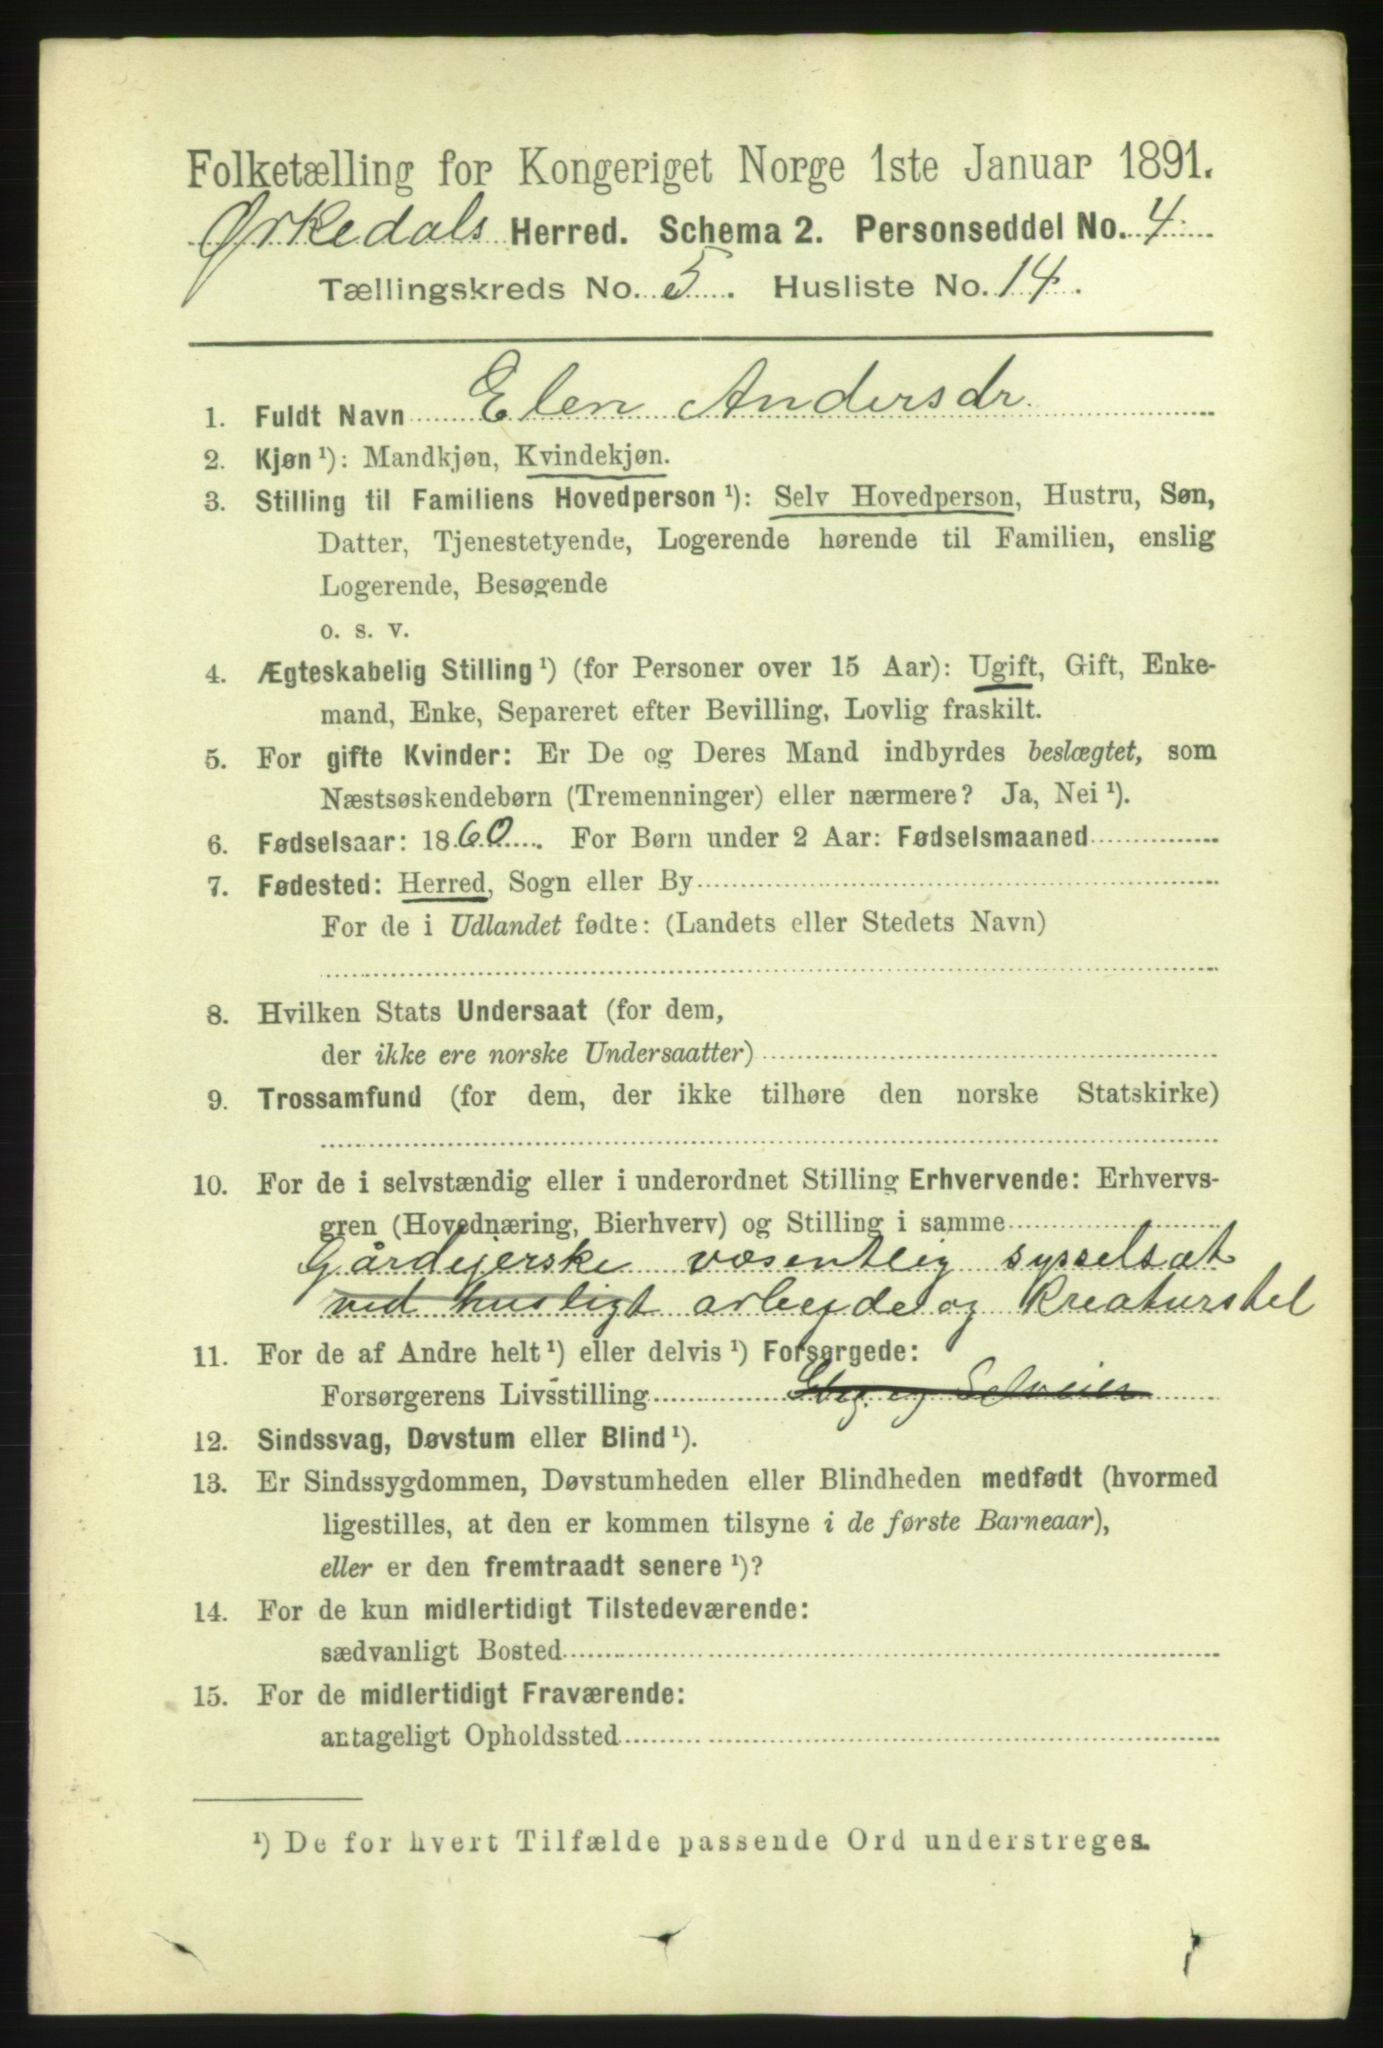 Folketælling for Kongeriget Norge 1ste Januar 1891.
Ørkedals Herred. Schema 2. Personseddel No. 4
Tællingskreds No. 5. Husliste No. 14.
1. Fuldt Navn Elen Andersdr.
2. Kjøn ¹): Mandkjøn, Kvindekjøn.
3. Stilling til Familiens Hovedperson ¹): Selv Hovedperson, Hustru, Søn,
Datter, Tjenestetyende, Logerende hørende til Familien, enslig
Logerende, Besøgende
o. s. v.
4. Ægteskabelig Stilling ¹) (for Personer over 15 Aar): Ugift, Gift, Enke-
mand, Enke, Separeret efter Bevilling, Lovlig fraskilt.
5. For gifte Kvinder: Er De og Deres Mand indbyrdes beslægtet, som
Næstsøskendebørn (Tremenninger) eller nærmere? Ja, Nei ¹).
6. Fødselsaar: 1860. For Børn under 2 Aar: Fødselsmaaned
7. Fødested: Herred, Sogn eller By
For de i Udlandet fødte: (Landets eller Stedets Navn)
8. Hvilken Stats Undersaat (for dem,
der ikke ere norske Undersaatter)
9. Trossamfund (for dem, der ikke tilhøre den norske Statskirke)
10. For de i selvstændig eller i underordnet Stilling Erhvervende: Erhvervs-
gren (Hovednæring, Bierhverv) og Stilling i samme
Gårdejerske væsentlig sysselsat
ved husligt arbejde og kreaturstel
11. For de af Andre helt ¹) eller delvis ¹) Forsørgede:
Forsørgerens Livsstilling Selveier
12. Sindssvag, Døvstum eller Blind ¹).
13. Er Sindssygdommen, Døvstumheden eller Blindheden medfødt (hvormed
ligestilles, at den er kommen tilsyne i de første Barneaar),
eller er den fremtraadt senere ¹)?
14. For de kun midlertidigt Tilstedeværende:
sædvanligt Bosted
15. For de midlertidigt Fraværende:
antageligt Opholdssted
¹) De for hvert Tilfælde passende Ord understreges.